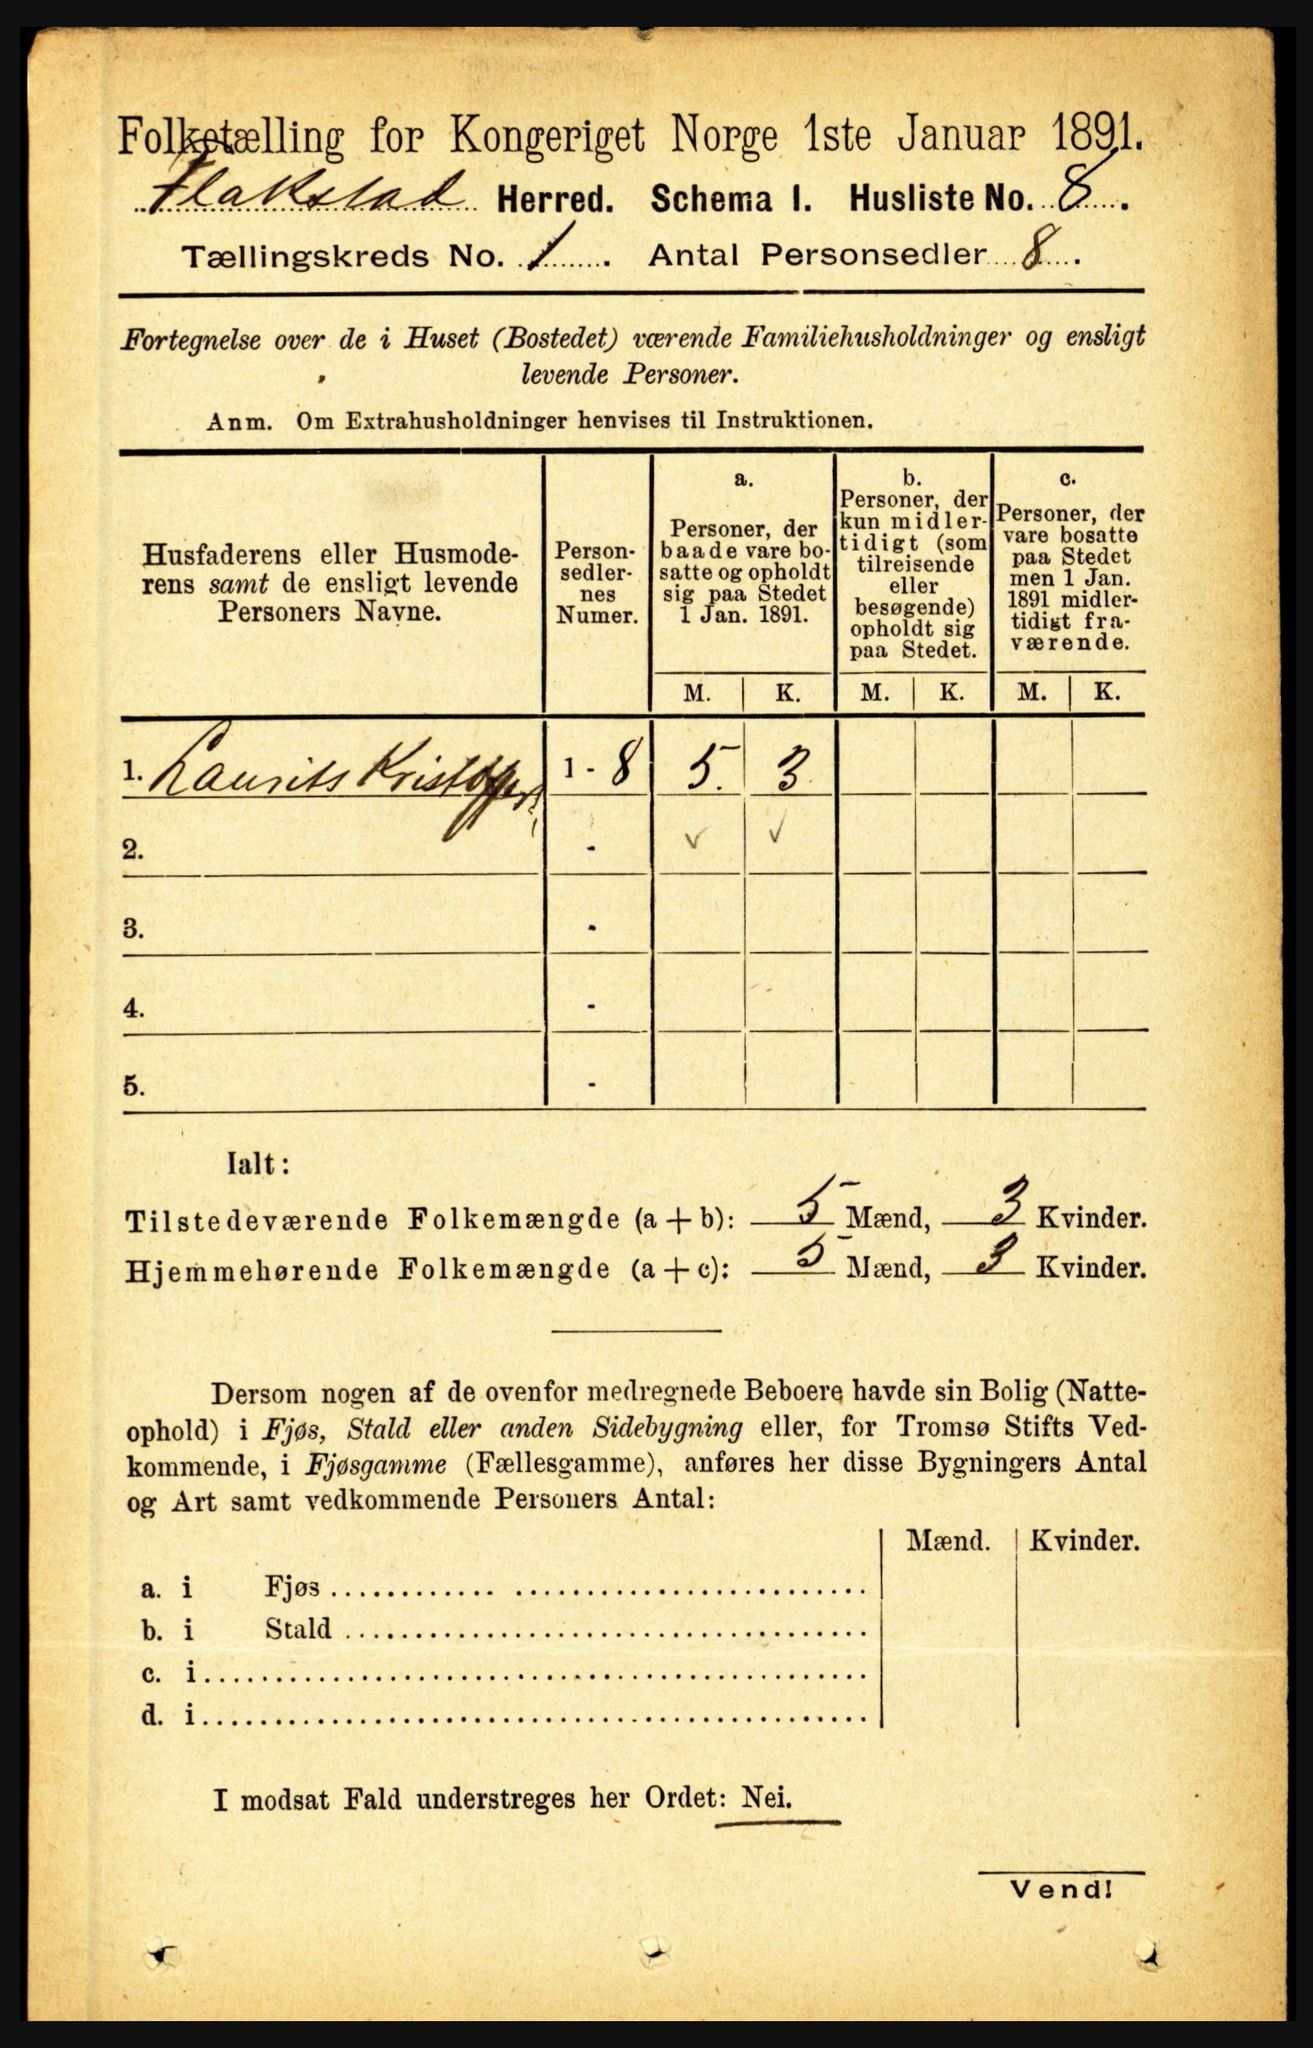 Folketælling for Kongeriget Norge 1ste Januar 1891.
Flakstad Herred. Schema I. Husliste No. 8.
Tællingskreds No. 1. Antal Personsedler 8.
Fortegnelse over de i Huset (Bostedet) værende Familiehusholdninger og ensligt
levende Personer.
Anm. Om Extrahusholdninger henvises til Instruktionen.
Husfaderens eller Husmode-
rens samt de ensligt levende
Personers Navne.
Person-
sedler-
nes
Numer.
a.
Personer, der
baade vare bo-
satte og opholdt
sig paa Stedet
1 Jan. 1891.
b.
Personer, der
kun midler-
tidigt (som
tilreisende
eller
besøgende)
opholdt sig
paa Stedet.
c.
Personer, der
vare bosatte
paa Stedet
men 1 Jan.
1891 midler-
tidigt fra-
værende.
M. K. M. K. M. K.
1. Laurits Kristoffers. 1 - 8 5. 3
2. - ✓ ✓
3. -
4. -
5. -
Ialt:
Tilstedeværende Folkemængde (a + b): 5 Mænd, 3 Kvinder.
Hjemmehørende Folkemængde (a + c): 5 Mænd, 3 Kvinder.
Dersom nogen af de ovenfor medregnede Beboere havde sin Bolig (Natte-
ophold) i Fjøs, Stald eller anden Sidebygning eller, for Tromsø Stifts Ved-
kommende, i Fjøsgamme (Fællesgamme), anføres her disse Bygningers Antal
og Art samt vedkommende Personers Antal:
Mænd. Kvinder.
a. i Fjøs
b. i Stald
c. i
d. i
I modsat Fald understreges her Ordet: Nei.
Vend!